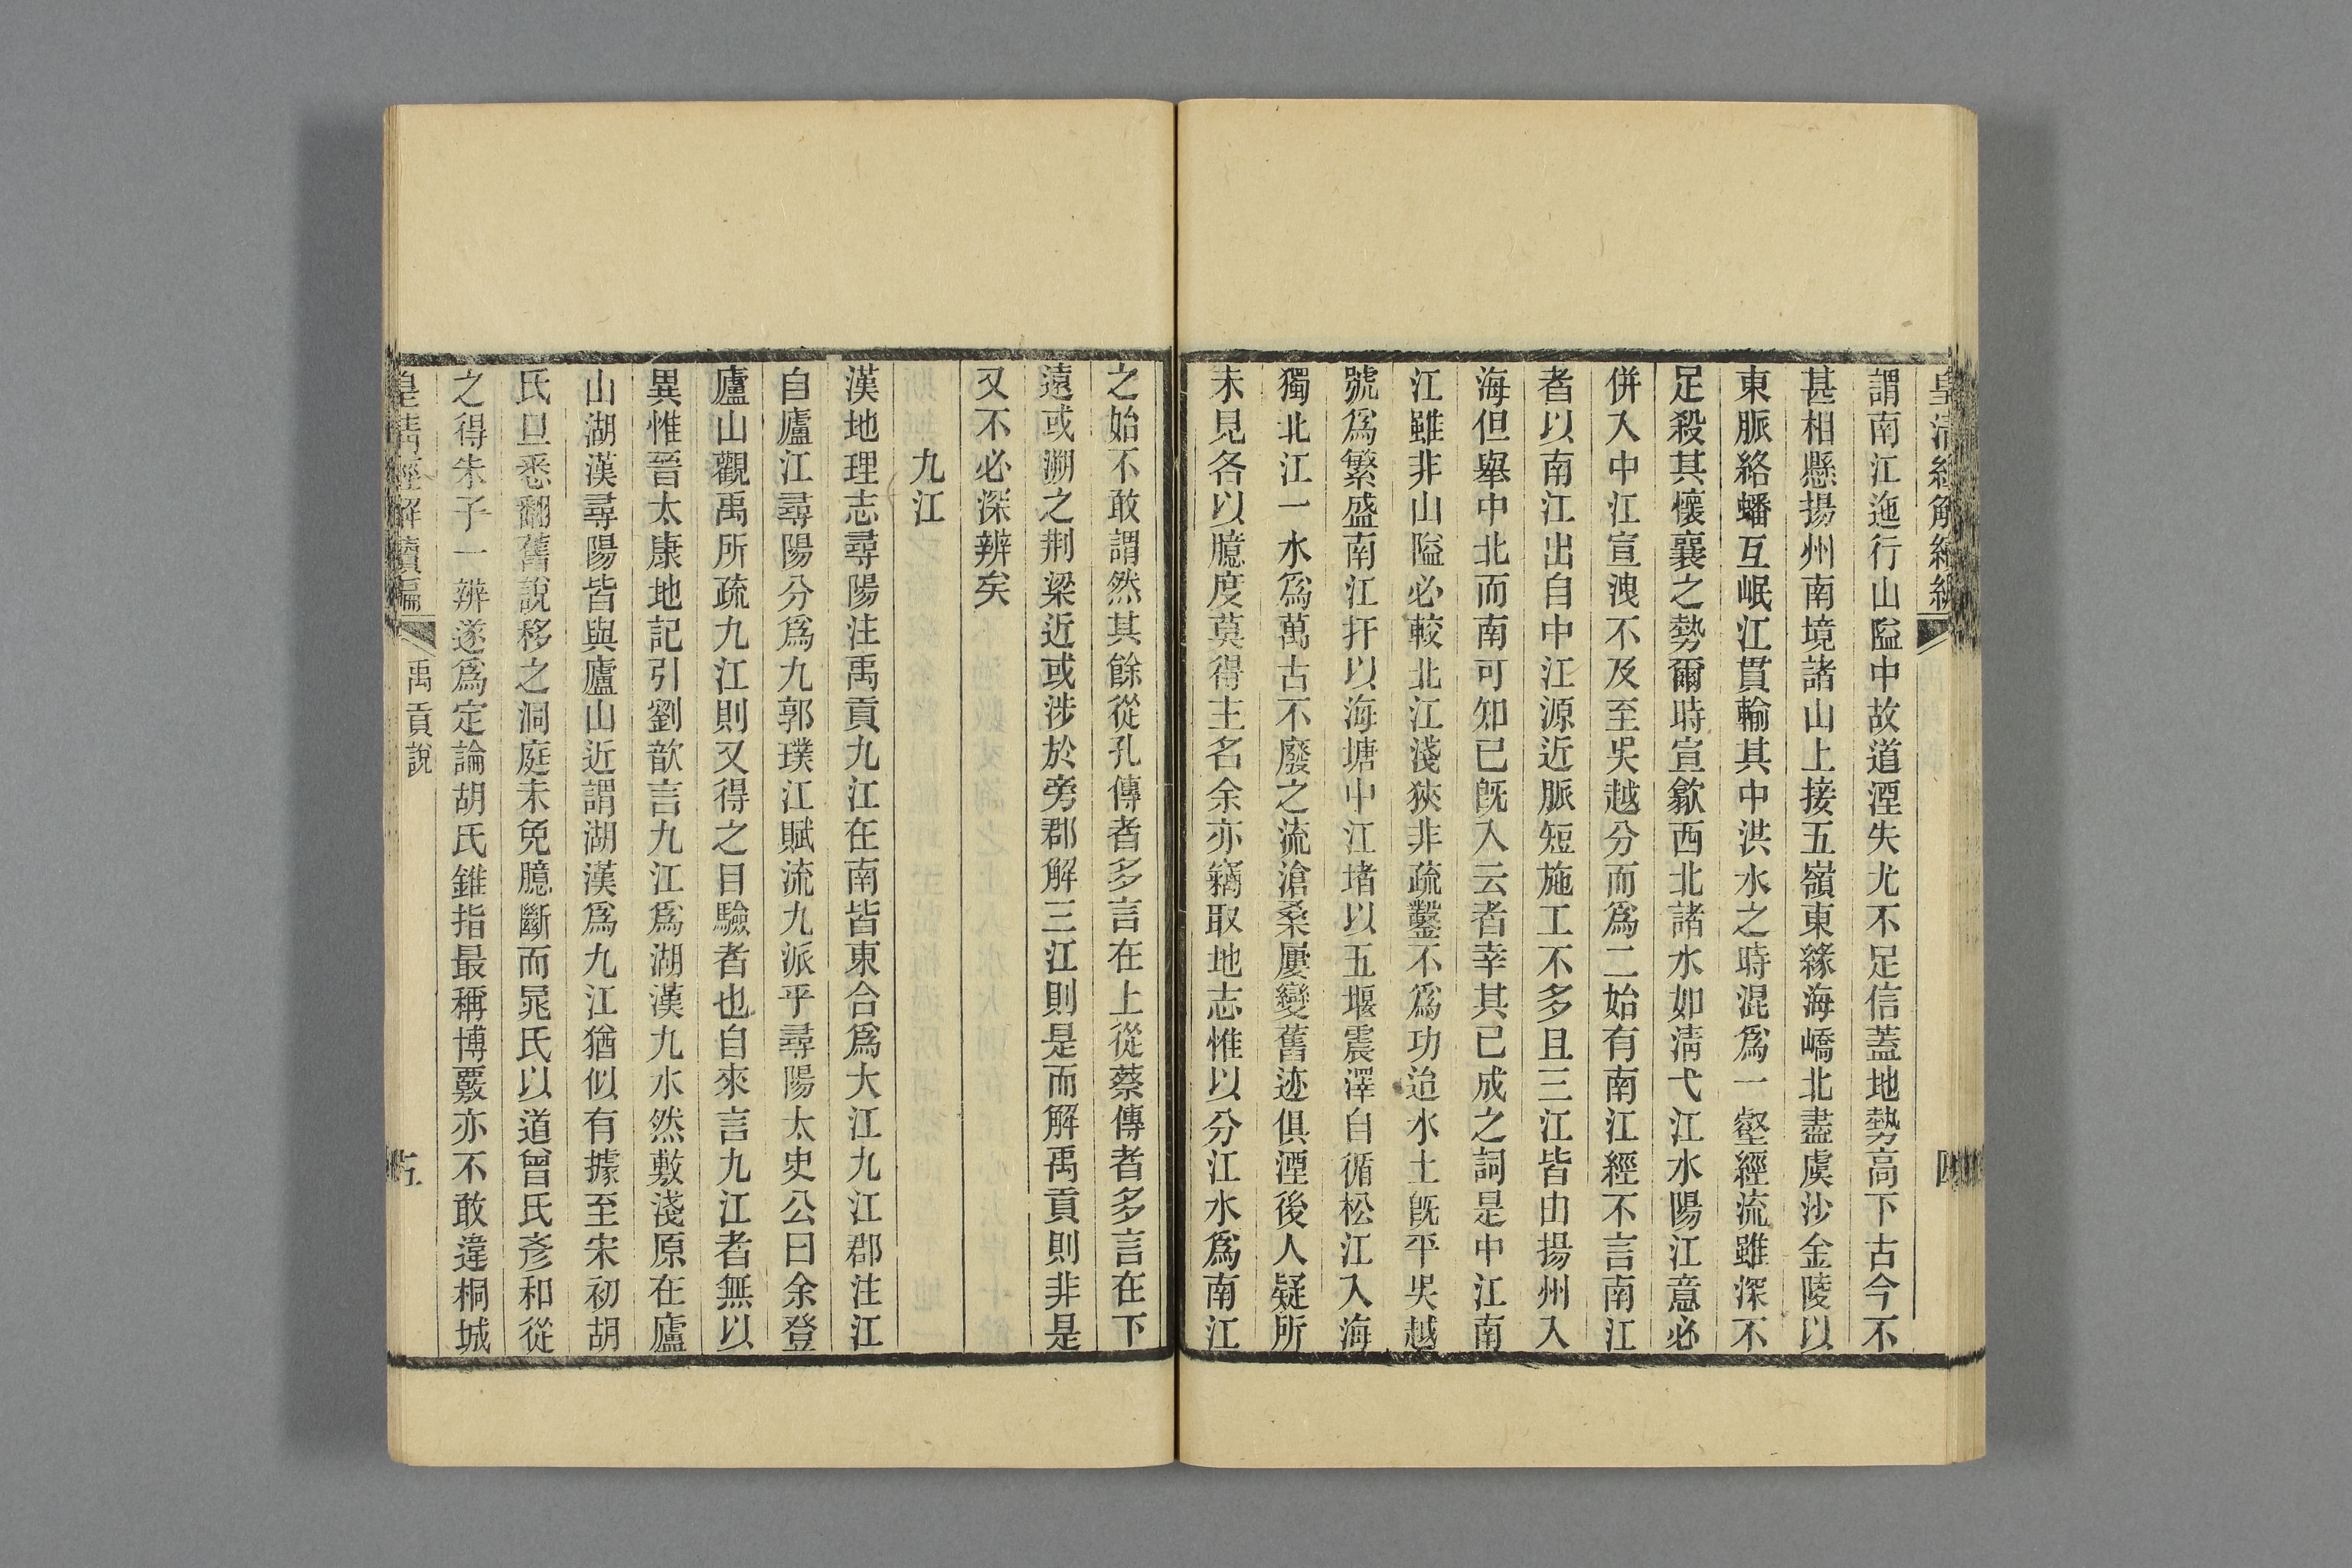 皇清經解續編
四
謂南江迤行山隘中故道湮失尤不足信蓋地勢高下古今不
甚相懸揚州南境諸山上接五嶺東緣海嶠北盡虞沙金陵以
東脈絡蟠互岷江貫輸其中洪水之時混爲一壑經流雖深不
足殺其懷襄之勢爾時宣歙西北諸水如淸弋江水陽江意必
併入中江宣洩不及至吳越分而爲二始有南江經不言南江
者以南江出自中江源近脈短施工不多且三江皆由揚州入
海但舉中北而南可知已旣入云者幸其已成之詞是中江南
江雖非山隘必較北江淺狹非疏鑿不爲功迨水土旣平吳越
號爲繁盛南江扞以海塘中江堵以五堰震澤自循松江入海
獨北江一水爲萬古不廢之流滄桑屢變舊迹俱湮後人疑所
未見各以臆度莫得主名余亦竊取地志惟以分江水爲南江
之始不敢謂然其餘從孔傳者多言在上從蔡傳者多言在下
遠或溯之荆梁近或涉於旁郡解三江則是而解禹貢則非是
又不必深辨矣
九江
漢地理志尋陽注禹貢九江在南皆東合爲大江九江郡注江
自廬江尋陽分爲九郭璞江賦流九派乎尋陽太史公曰余登
廬山觀禹所疏九江則又得之目驗者也自來言九江者無以
異惟晉太康地記引劉歆言九江爲湖漢九水然敷淺原在廬
山湖漢尋陽皆與廬山近謂湖漢爲九江猶似有據至宋初胡
氏旦悉翻舊說移之洞庭未免臆斷而晁氏以道曾氏彥和從
之得朱子一辨遂爲定論胡氏錐指最稱博覈亦不敢違桐城
皇淸經解續編
禹貢說
五